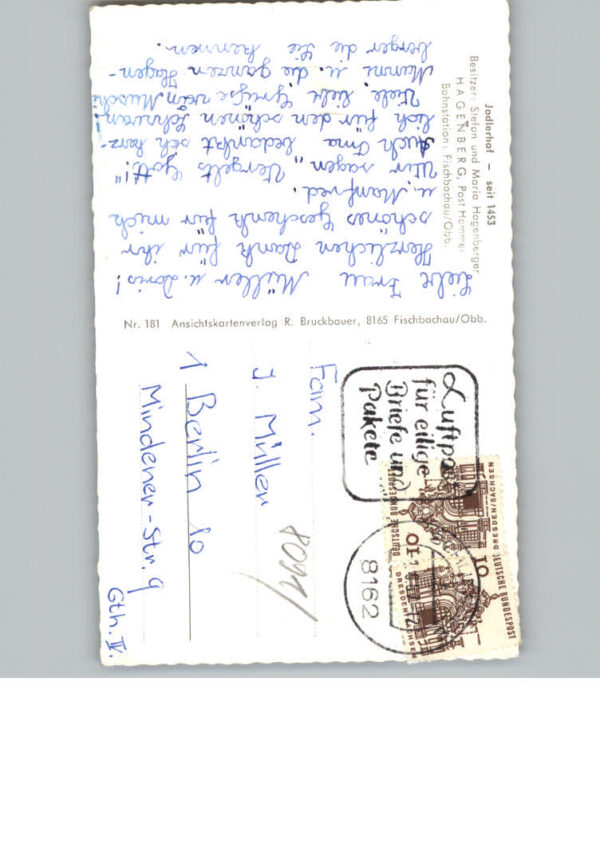 Jodlerhof seit 1453
Besitzer: Stefan und Maria Hagenberger
HAGENBERG, Post Hammer
Bahnstation: Fischbachau/Obb.
Liebe Frau Müller u. Doris!
Herzlichen Dank für ihr
schönes Geschenk für mich
u. Manfred.
Wir sagen „Vergelts Gott!"
Auch Oma bedankt sich herz-
lich für den schönen Schwan!
Viele, liebe Grüße von Muschi
Mammi u. die ganzen Hagen-
berger die Sie kennen.
Nr. 181 Ansichtskartenverlag R. Bruckbauer, 8165 Fischbachau/Obb.
Luftpost
für eilige
Briefe und
Pakete
8162
10
DEUTSCHE BUNDESPOST
DRESDEN/SACHSEN
10
DEUTSCHE BUNDESPOST
DRESDEN/SACHSEN
Fam.
J. Müller
1 Berlin 10
Mindener-Str. 9
Gth. IV.